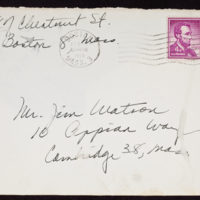 Chestnut St.
Boston 8 Mass.
Mr. Jim Watson
10 Appian Way
Cambridge 38, Mass.